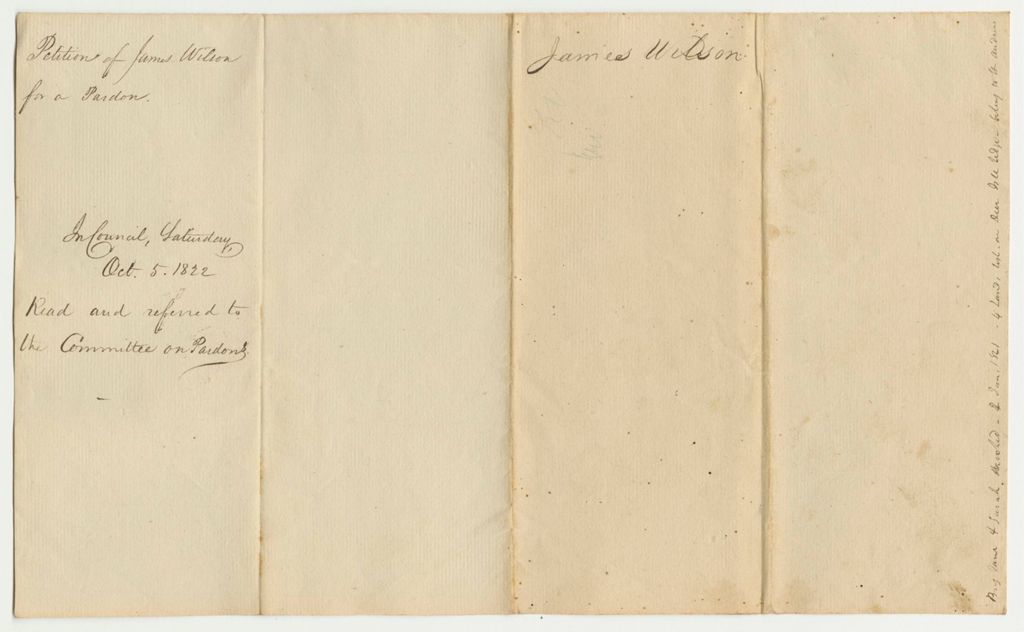 Petition of James Wilson
for a Pardon.
In Council, Saturday,
Oct. 5. 1822
Read and referred to
the Committee on Pardons.
James Wilson
& Sarah 2 Jan. 1821 4 on Deer Isle to